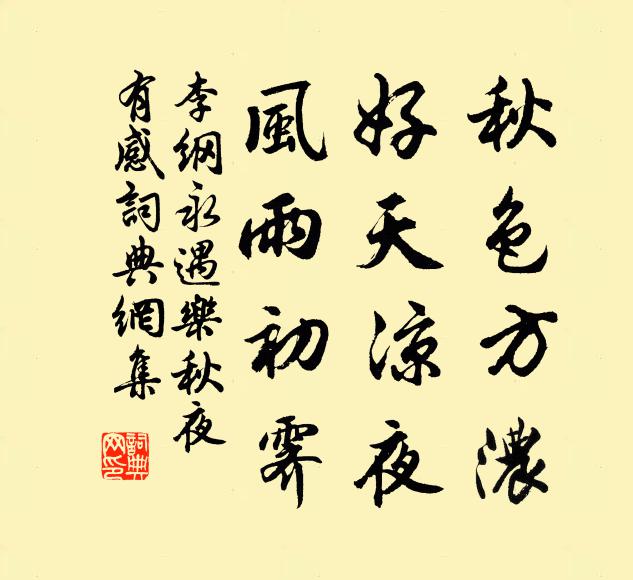 秋色方濃
好天涼夜
風雨初霽
李綱永遇樂秋夜
有感詞典網集
詞典
网印